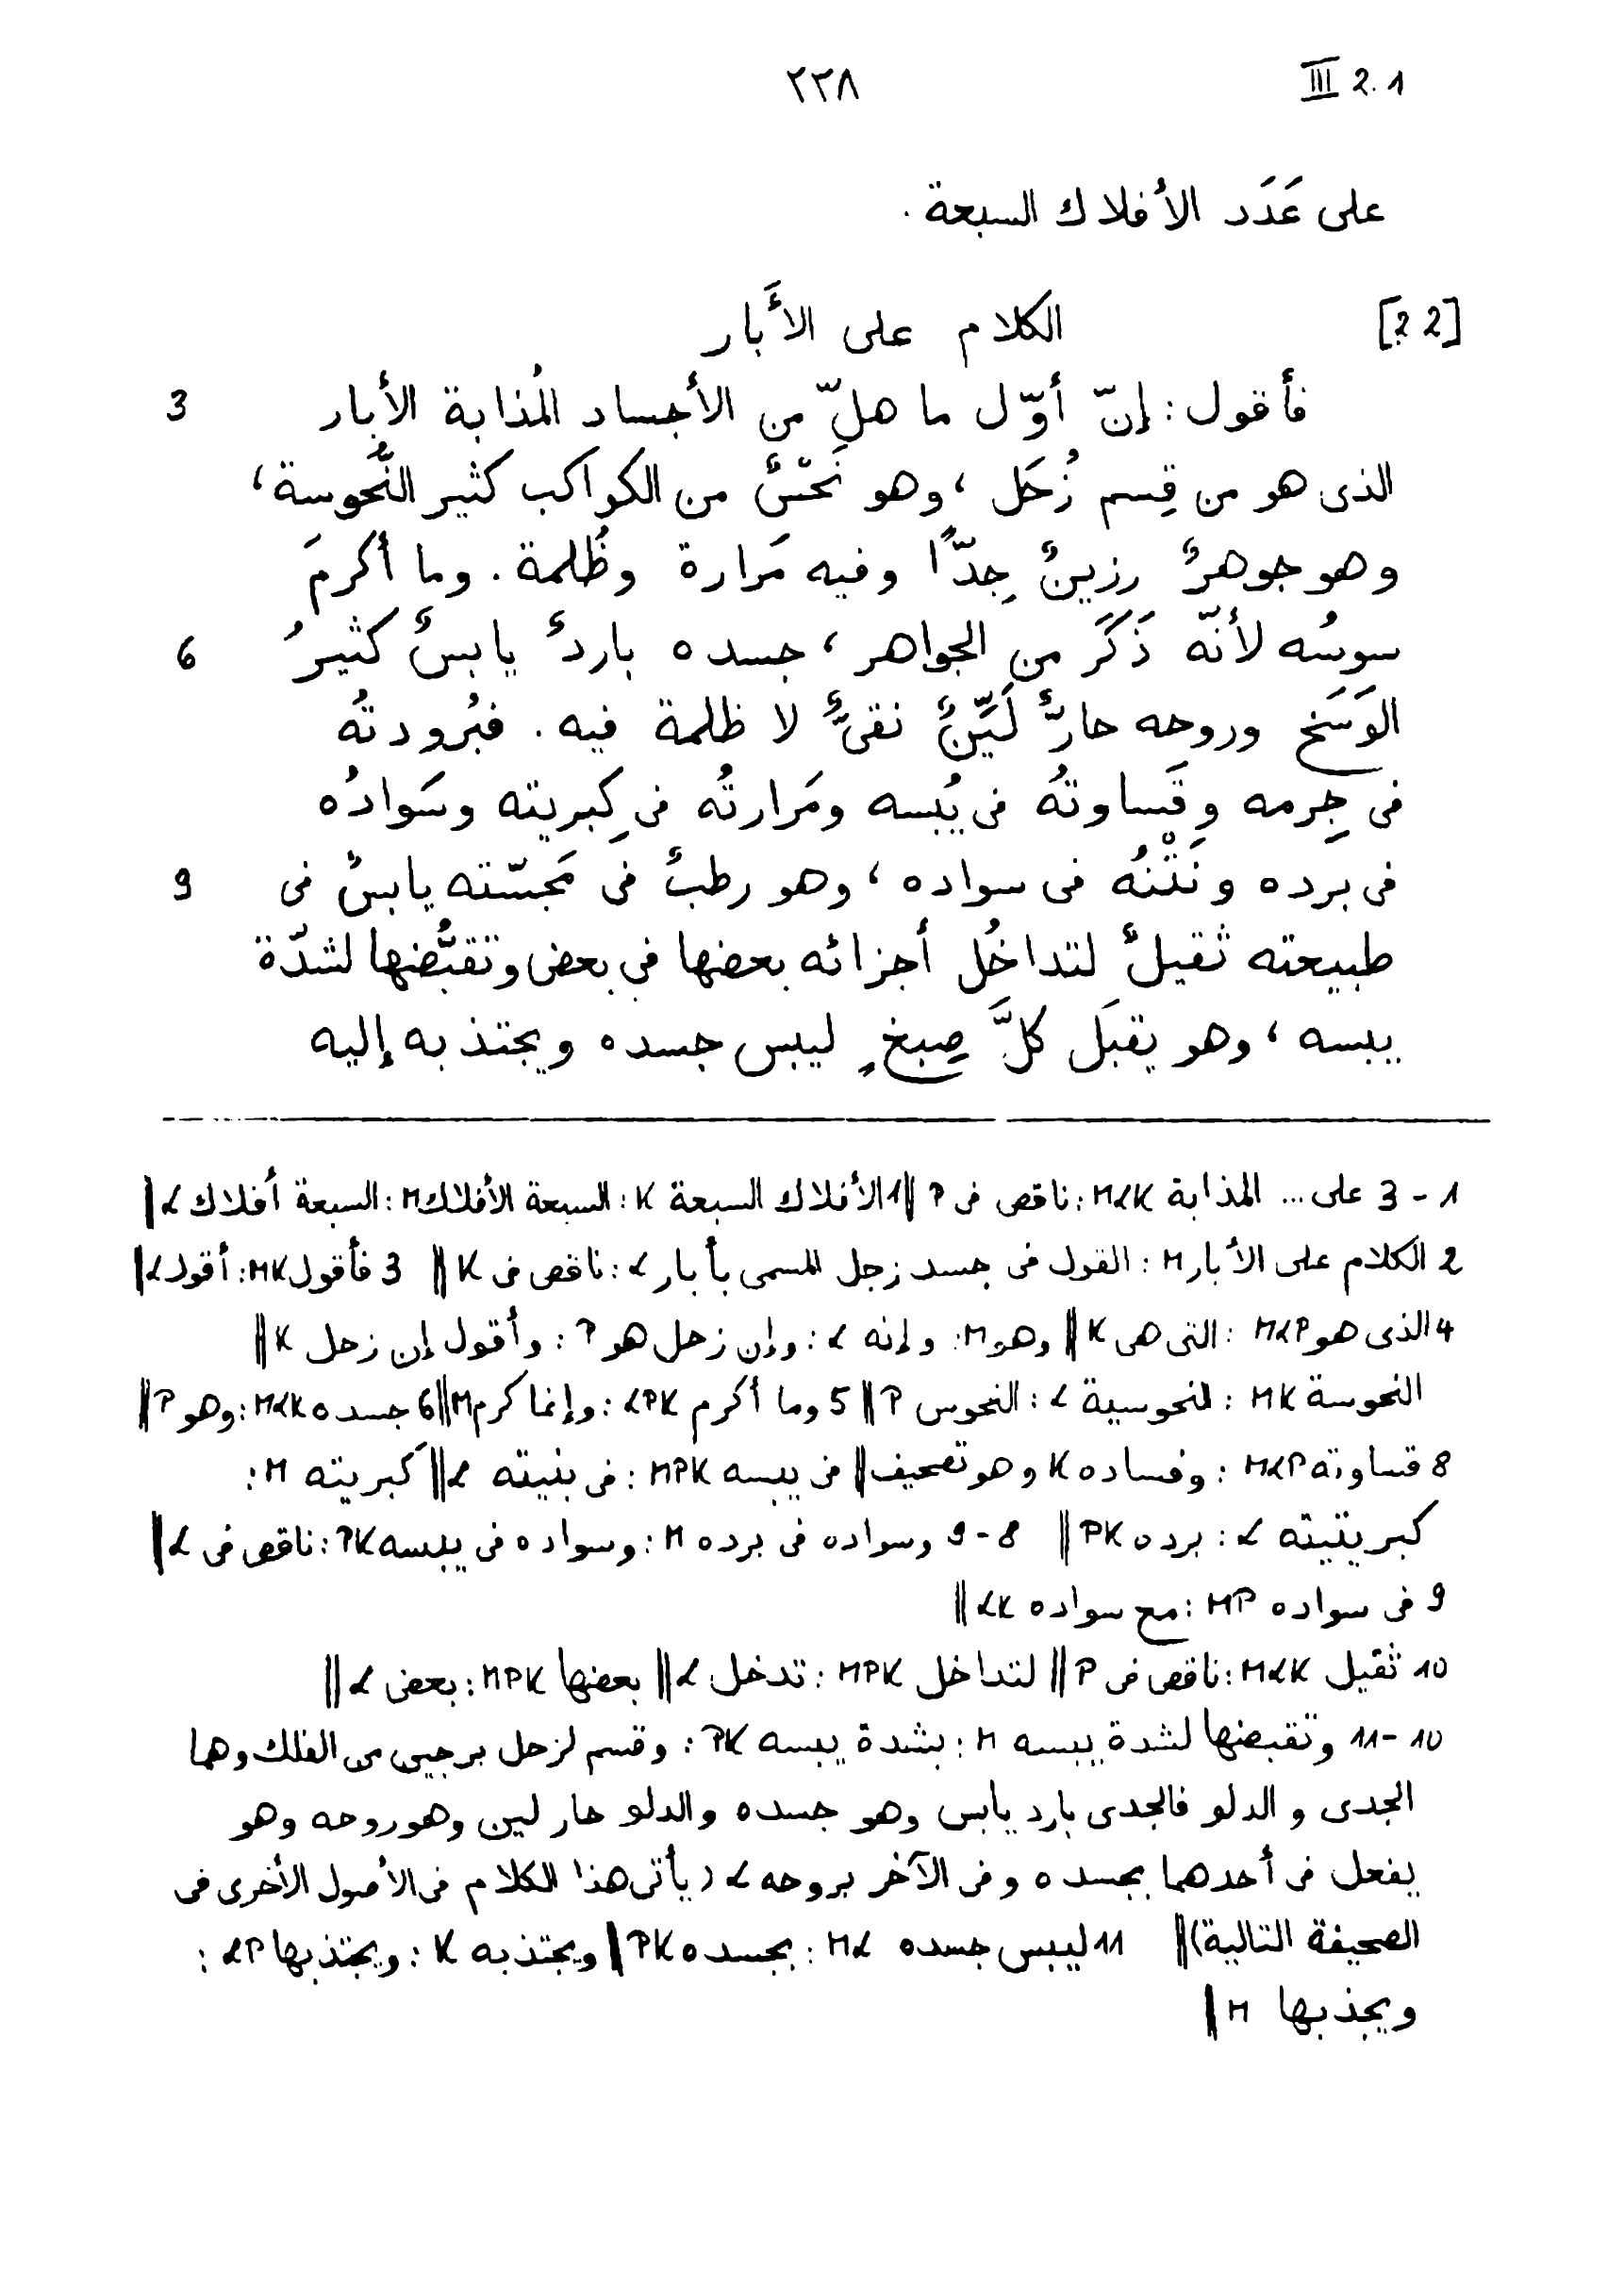 ٢٣٨ III 2.1
على عَدَد الأفلاك السبعة .
[22] الكلام على الأَبار
فأقول : إنّ أوّل ما هلّ من الأجساد المُذابة الأبار 3
الذى هو من قِسم زُحَل ، وهو نَحْسٌ من الكواكب كثير النُّحوسة ،
وهو جوهرٌ رزينٌ جِدًّا وفيه مَرارة وظُلمة . وما أكرمَ
سوسُه لأنّه ذَكَرَ من الجواهر ، جسده باردٌ يابسٌ كثيرُ 6
الوَسَخ وروحه حارٌّ لَيِّنٌ نقىٌّ لا ظلمة فيه . فبُرودتُه
فى جِرمه وقَساوتُه فى يُبسه ومَرارتُه فى كِبريته وسَوادُه
فى برده ونَتْنُه فى سواده ، وهو رطبٌ فى مَجسّته يابسٌ فى 9
طبيعته ثَقيلٌ لتداخُل أجزائه بعضها فى بعض وتقبُّضها لشدّة
يبسه ، وهو يقبَل كلَّ صِبغٍ ليبس جسده ويجتذبه إليه
1 - 3 على ... المذابة MLK : ناقص فى P || 1 الأفلاك السبعة K : السبعة الأفلاك M : السبعة أفلاك L ||
2 الكلام على الأبار M : القول فى جسد زحل المسمى بأبار L : ناقص فى K || 3 فأقول MK : أقول L ||
4 الذى هو MLP : التى هى K || وهو M : وإنه L : وإن زحل هو P : وأقول إن زحل K ||
النحوسة MK : النحوسية L : النحوس P || 5 وما أكرم LPK : وإنما كرم M || 6 جسده MLK : وهو P ||
8 قساوته MLP : وفساده K وهو تصحيف || فى يبسه MPK : فى بنيته L || كبريته M :
كبريتيته L : برده PK || 8 - 9 وسواده فى برده M : وسواده فى يبسه PK : ناقص فى L ||
9 فى سواده MP : مع سواده LK ||
10 ثقيل MLK : ناقص فى P || لتداخل MPK : تدخل L || بعضها MPK : بعض L ||
10 - 11 وتقبضها لشدة يبسه M : بشدة يبسه PK : وقسم لزحل برجين من الفلك وهما
الجدى والدلو فالجدى بارد يابس وهو جسده والدلو حار لين وهو روحه وهو
يفعل فى أحدهما بجسده وفى الآخر بروحه L ( يأتى هذا الكلام فى الأصول الأخرى فى
الصحيفة التالية) || 11 ليبس جسده ML : بجسده PK || ويجتذبه K : ويجتذبها LP :
ويجذبها M ||